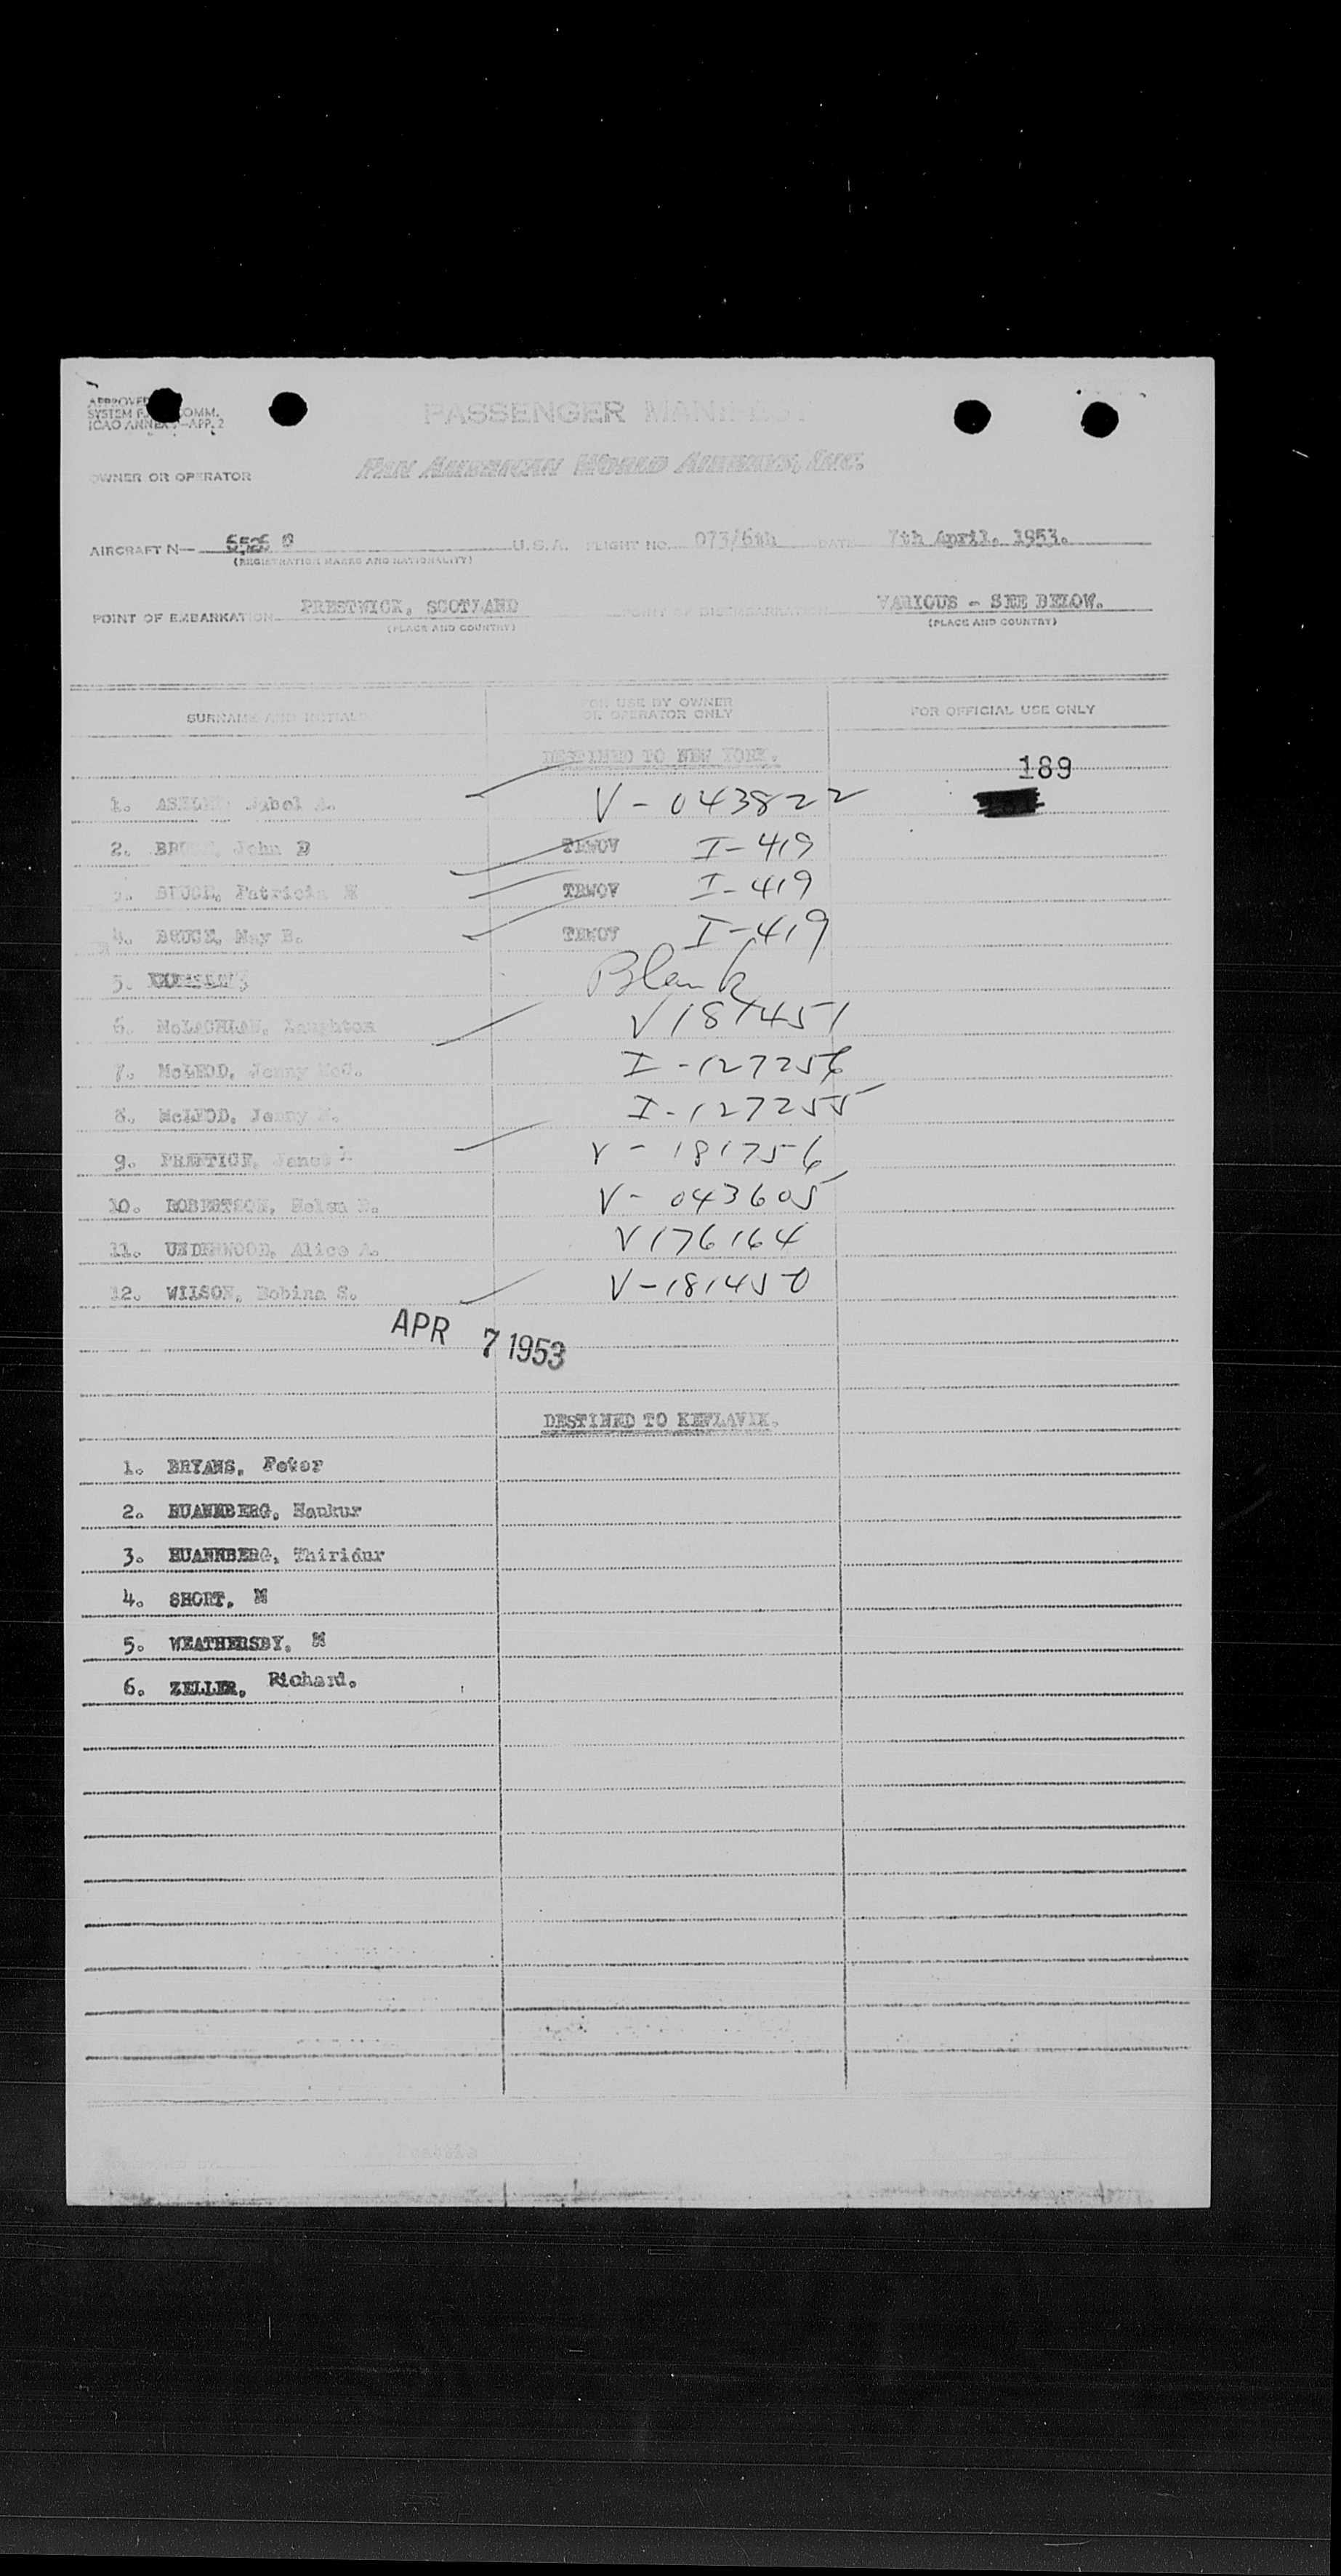 APPROVED
SYSTEM F COMM.
ICAO ANNEX -APP. 2
PASSENGER MANIFEST
OWNER OR OPERATOR PAN AMERICAN WORLD AIRWAYS, INC.
AIRCRAFT N— U.S.A. FLIGHT NO. 073/6th DATE 7th April. 1953.
(REGISTRATION MARKS AND NATIONALITY)
POINT OF EMBARKATION PRESTWICK, SCOTLAND POINT OF DISEMBARKATION VARIOUS - SEE BELOW.
(PLACE AND COUNTRY) (PLACE AND COUNTRY)
SURNAME AND INITIALS FOR USE BY OWNER OR OPERATOR ONLY FOR OFFICIAL USE ONLY
DESTINED TO NEW YORK.
189
1. A. V-043822
2. John TRWOV I-419
3. BRUCE, Patricia TRWOV I-419
4. BRUCE, May B. TRWOV I-419
5. Blank
6. McLACHLAN, Laughton V181451
7. McLEOD, Jenny McC. I-127256
8. McLEOD, Jenny I-127255
9. PRENTICE, Janet V-181756
10. ROBERTSON, Helen V-043605
11. UNDERWOOD, Alice A. V176164
12. WILSON, Robina S. V-181450
APR 7 1953
DESTINED TO KEFLAVIK.
1. BRYANS, Peter
2. HUANNBERG, Haukur
3. HUANNBERG, Thiridur
4. SHORT, M
5. WEATHERSBY, M
6. ZELLER, Richard.